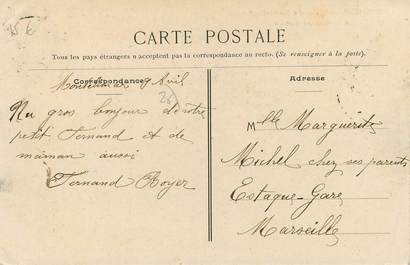 15 €
CARTE POSTALE
Tous les pays étrangers n'acceptent pas la correspondance au recto. (Se renseigner à la poste).
Correspondance
9 Avril
Un gros bonjour de votre
petit Fernand et de
maman aussi
Fernand Royer
Adresse
Mlle Marguerite
Michel chez ses parents
Estaque-Gare
Marseille